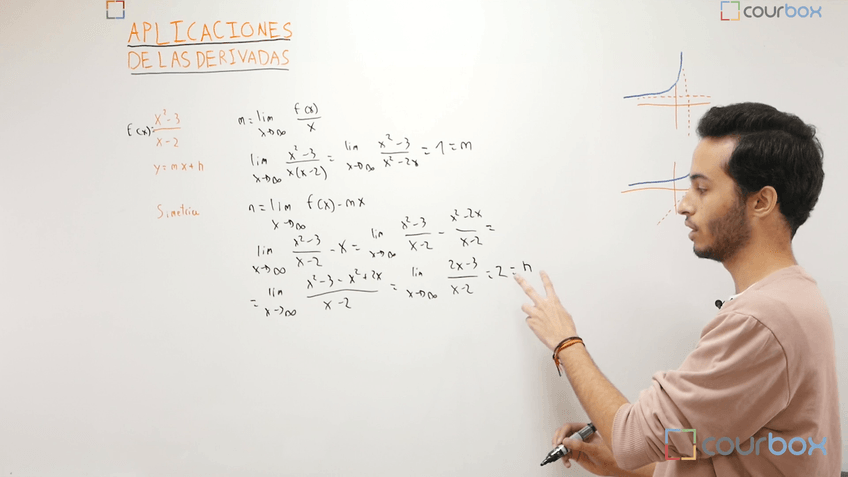 APLICACIONES
DE LAS DERIVADAS
courbox
f(x)= x²-3 / x-2
y=mx+n
Simetría
m=lim x→∞ f(x) / x
lim x→∞ x²-3 / x(x-2) = lim x→∞ x²-3 / x²-2x = 1 = m
n=lim x→∞ f(x)-mx
lim x→∞ x²-3 / x-2 - x = lim x→∞ x²-3 / x-2 - x²-2x / x-2 =
= lim x→∞ x²-3-x²+2x / x-2 = lim x→∞ 2x-3 / x-2 = 2 = n
courbox